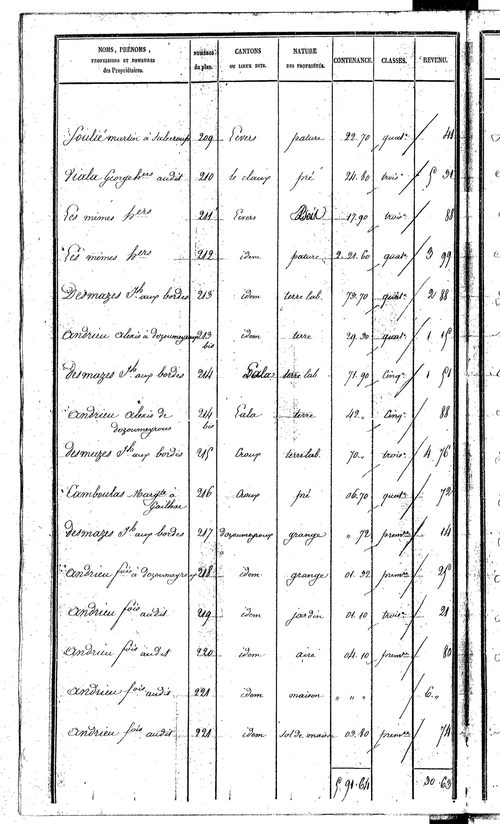 NOMS, PRÉNOMS, PROFESSIONS ET DEMEURES des Propriétaires. NUMÉROS du plan. CANTONS OU LIEUX DITS. NATURE DES PROPRIÉTÉS. CONTENANCE. CLASSES. REVENU.
Soulié martin à 209 Evers pature 22.70 quat. 41
Viala George hers audit 210 le claux pré 24.80 trois. 5 31
Les mêmes hers 211 Evers Bois 17.90 trois. 88
Les mêmes hers 212 idem pature 2.21.60 quat. 3 99
Desmazes Jh aux bordes 213 idem terre lab. 73.70 quat. 2 88
Andrieu alexis à dozoumeyroux 213 bis idem terre 29.30 quat. 1 15
Desmazes Jh aux bordes 214 Lala terre lab 71.90 Cinq. 1 51
Andrieu alexis de dozoumeyrous 214 bis Lala terre 42 „ Cinq. 88
desmazes Jh aux bordes 215 Croux terre lab. 70 „ trois. 4 76
Camboulas Margte à 216 Croux pré 06.70 quat. 72
Desmazes Jh aux bordes 217 dozoumeyroux grange „ 72 prem. 14
Andrieu fois à dozoumeyroux 218 idem grange 01.32 prem. 25
Andrieu fois audit 219 idem jardin 01.10 trois. 21
Andrieu fois audit 220 idem aire 04.10 prem. 80
Andrieu fois audit 221 idem maison „ „ „ 6 „
Andrieu fois audit 221 idem sol de maison 03.80 prem. 74
5.91.64 30.63